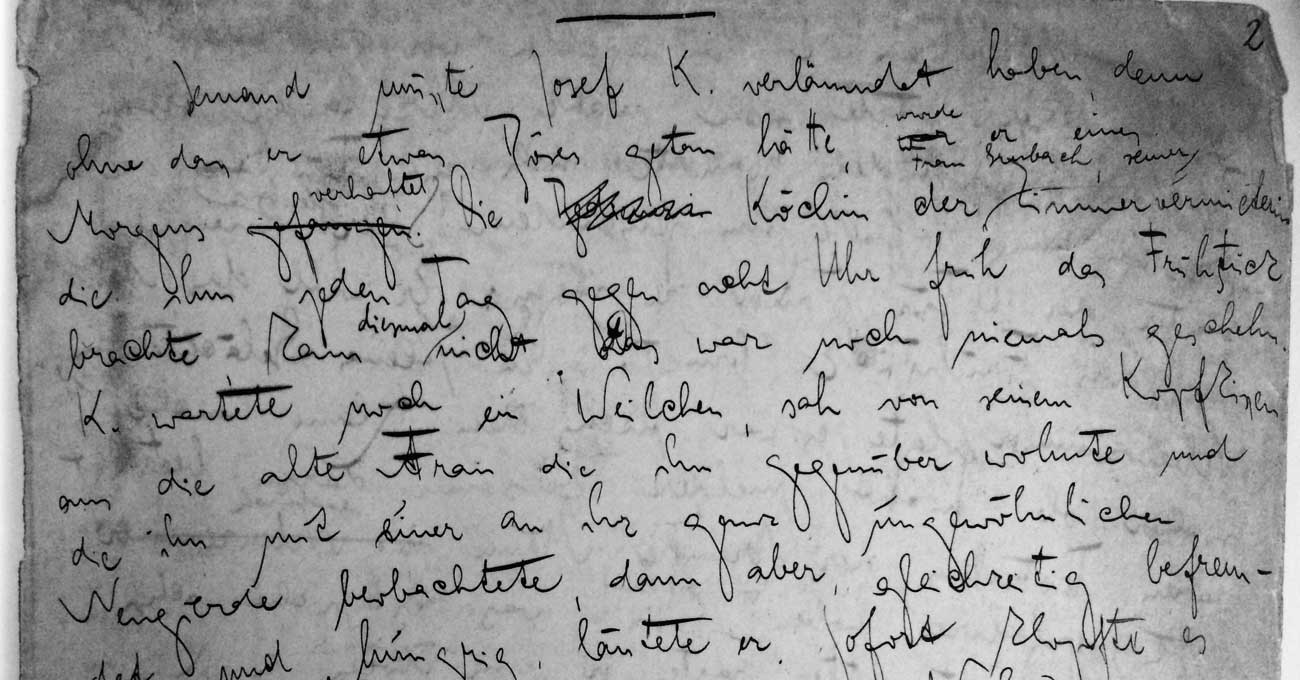 2
Jemand mußte Josef K. verläumdet haben, denn
ohne daß er etwas Böses getan hätte, war wurde er eines
Frau Grubach, seiner
Morgens gefangen verhaftet. Die Köchin der Zimmervermieterin,
die ihm jeden Tag gegen acht Uhr früh das Frühstück
brachte kam diesmal nicht. Das war noch niemals geschehn.
K. wartete noch ein Weilchen, sah von seinem Kopfkissen
aus die alte Frau die ihm gegenüber wohnte und
die ihn mit einer an ihr ganz ungewöhnlichen
Neugierde beobachtete, dann aber, gleichzeitig befrem-
det und hungrig, läutete er. Sofort klopfte es